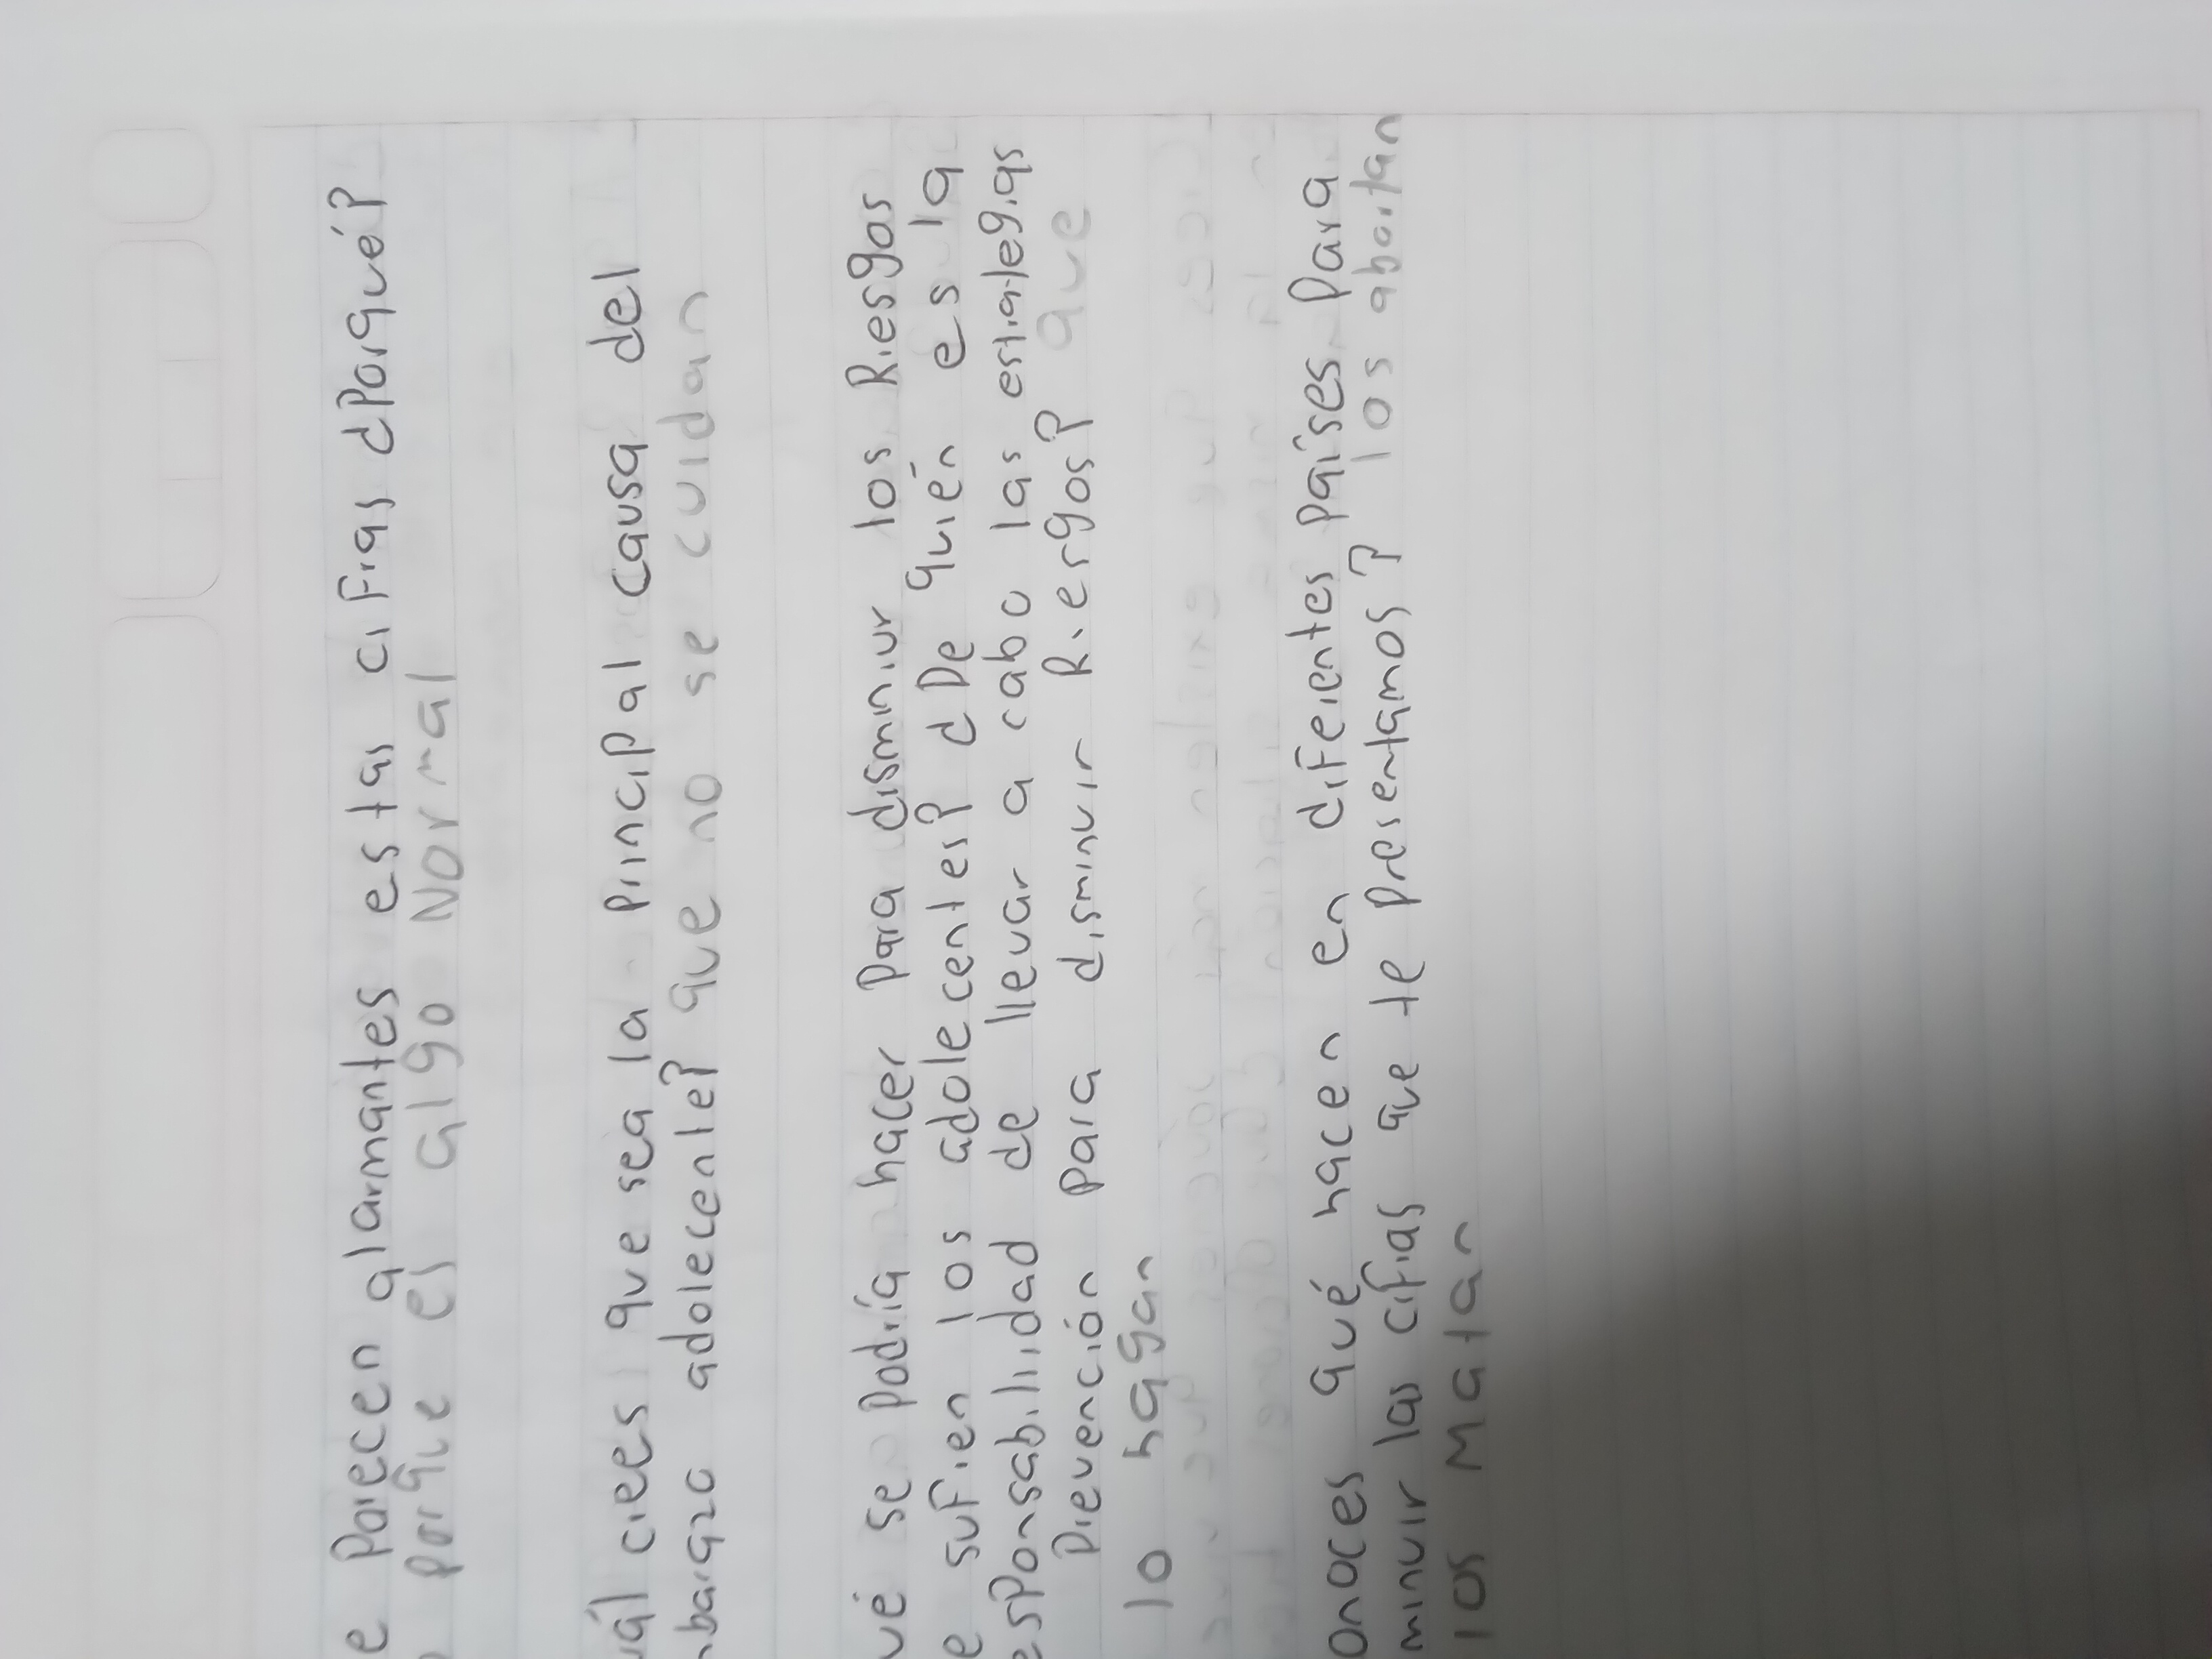 e parecen alarmantes estas cifras ¿Porqué?
porque es algo Normal
uál crees que sea la principal causa del
mbarazo adolecente? que no se cuidan
ué se podría hacer para disminiur los Riesgos
e sufren los adolecentes? ¿De quién es la
esponsabilidad de llevar a cabo las estrategias
prevención para disminuir Riesgos? que
lo hagan
onoces qué hacen en diferentes países para
minuir las cifras que te presentamos? los abortan
los matan